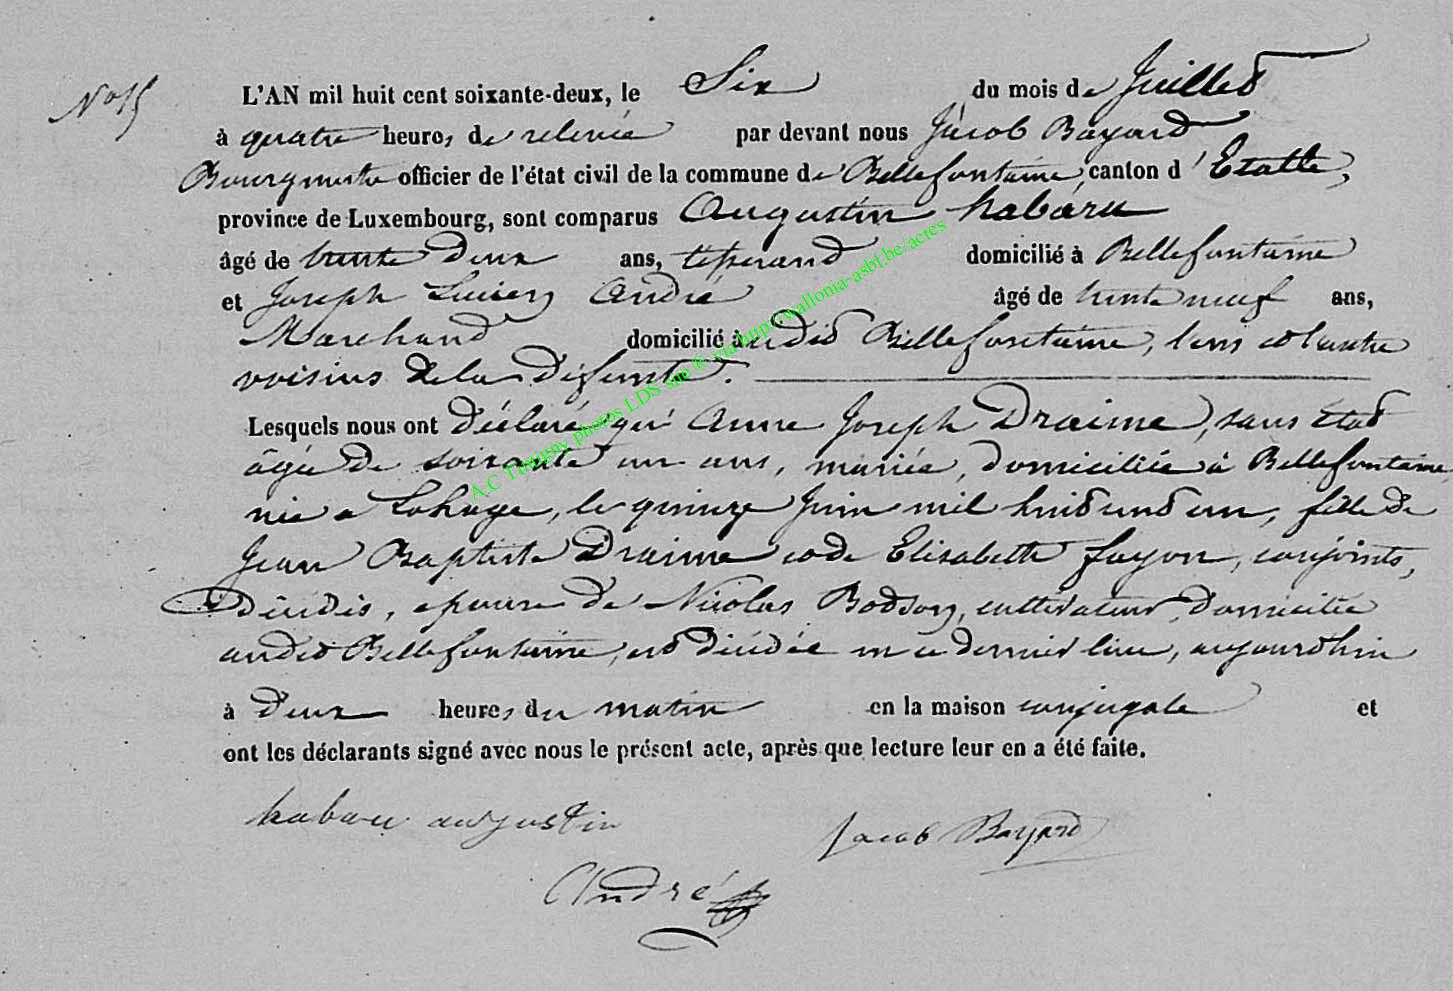 N° 15
L'AN mil huit cent soixante-deux, le Six du mois de Juillet
à quatre heures de relevée par devant nous Jacob Bayard
Bourgmestre officier de l'état civil de la commune de Bellefontaine, canton d'Etalle,
province de Luxembourg, sont comparus Augustin habaru
âgé de trente deux ans, tisserand domicilié à Bellefontaine
et Joseph Lucien André âgé de trente neuf ans,
Marchand domicilié à udit Bellefontaine, l'un et l'autre
voisins de la Défunte.
Lesquels nous ont déclaré qu'Anne Joseph Draime, sans état
âgée de soixante un ans, mariée, domiciliée à Bellefontaine
née a Lahage, le quinze Juin mil huit cent un, fille de
Jean Baptiste Draime et de Elisabeth fayon, conjoints,
Décédés, épouse de Nicolas Bodson, cultivateur, domicilié
audit Bellefontaine, est décédée en ce dernier lieu, aujourd'hui
à deux heures du matin en la maison conjugale et
ont les déclarants signé avec nous le présent acte, après que lecture leur en a été faite.
habaru augustin
Jacob Bayard
André
A.C Tintigny photos LDS site © via http://wallonia-asbl.be/actes